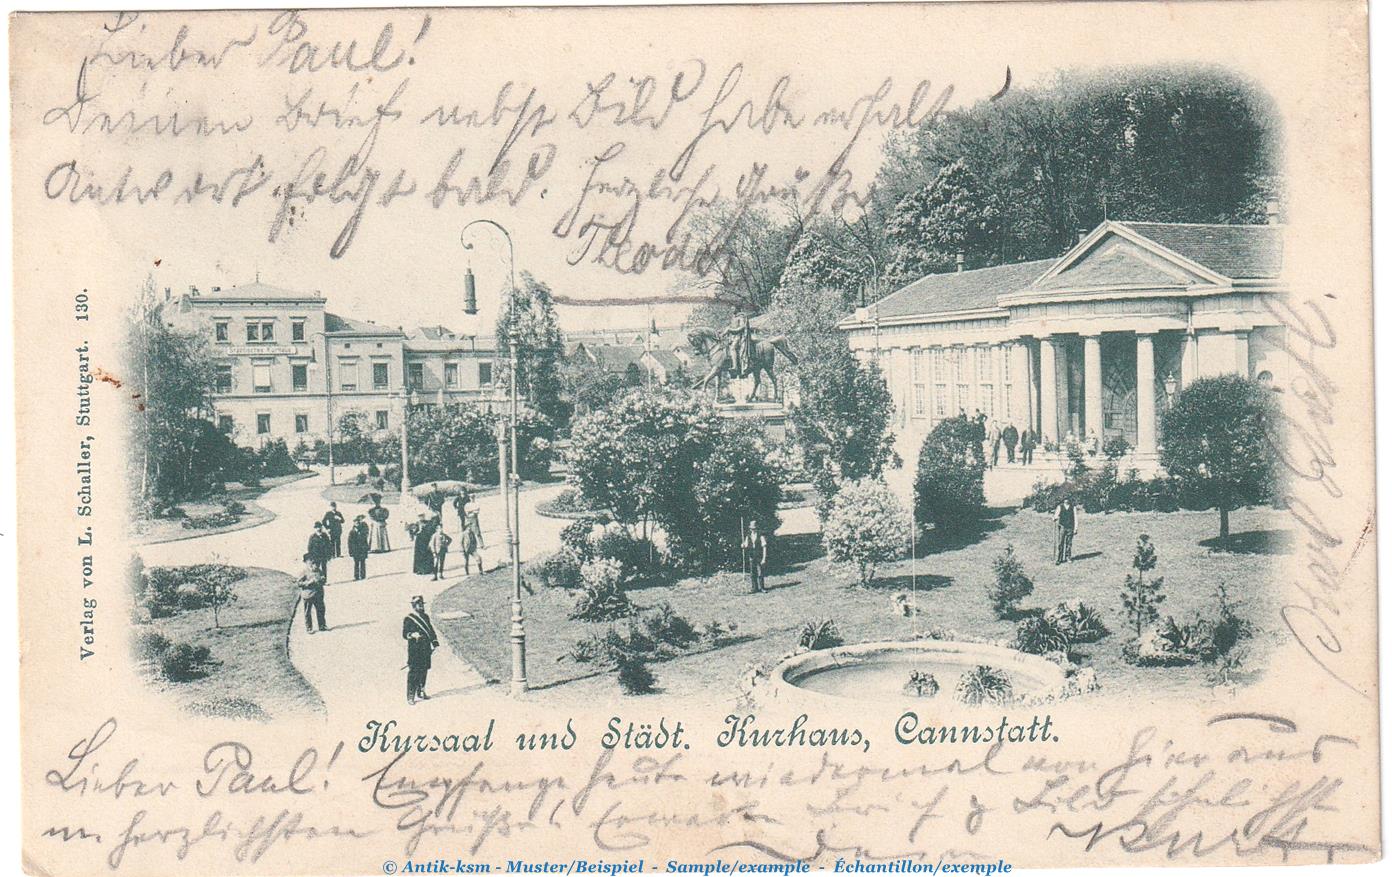 Lieber Paul!
Deinen Brief nebst Bild habe erhalten
Antwort folgt bald. Herzliche Grüße
Theodor
Städtisches Kurhaus
Verlag von L. Schaller, Stuttgart. 130.
Karl
Kursaal und Städt. Kurhaus, Cannstatt.
Lieber Paul! Empfange heute wiedermal von hier aus
herzlichsten Grüße! Erwarte Brief & Bild
Dein Kurt
© Antik-ksm - Muster/Beispiel - Sample/example - Échantillon/exemple